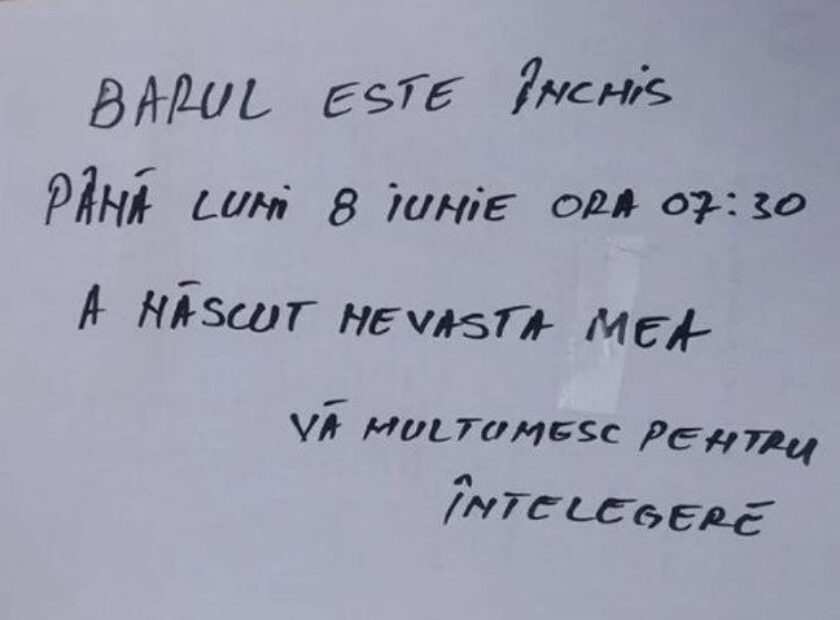 BARUL ESTE ÎNCHIS
PÂNĂ LUNI 8 IUNIE ORA 07:30
A NĂSCUT NEVASTA MEA
VĂ MULTUMESC PENTRU
ÎNTELEGERE